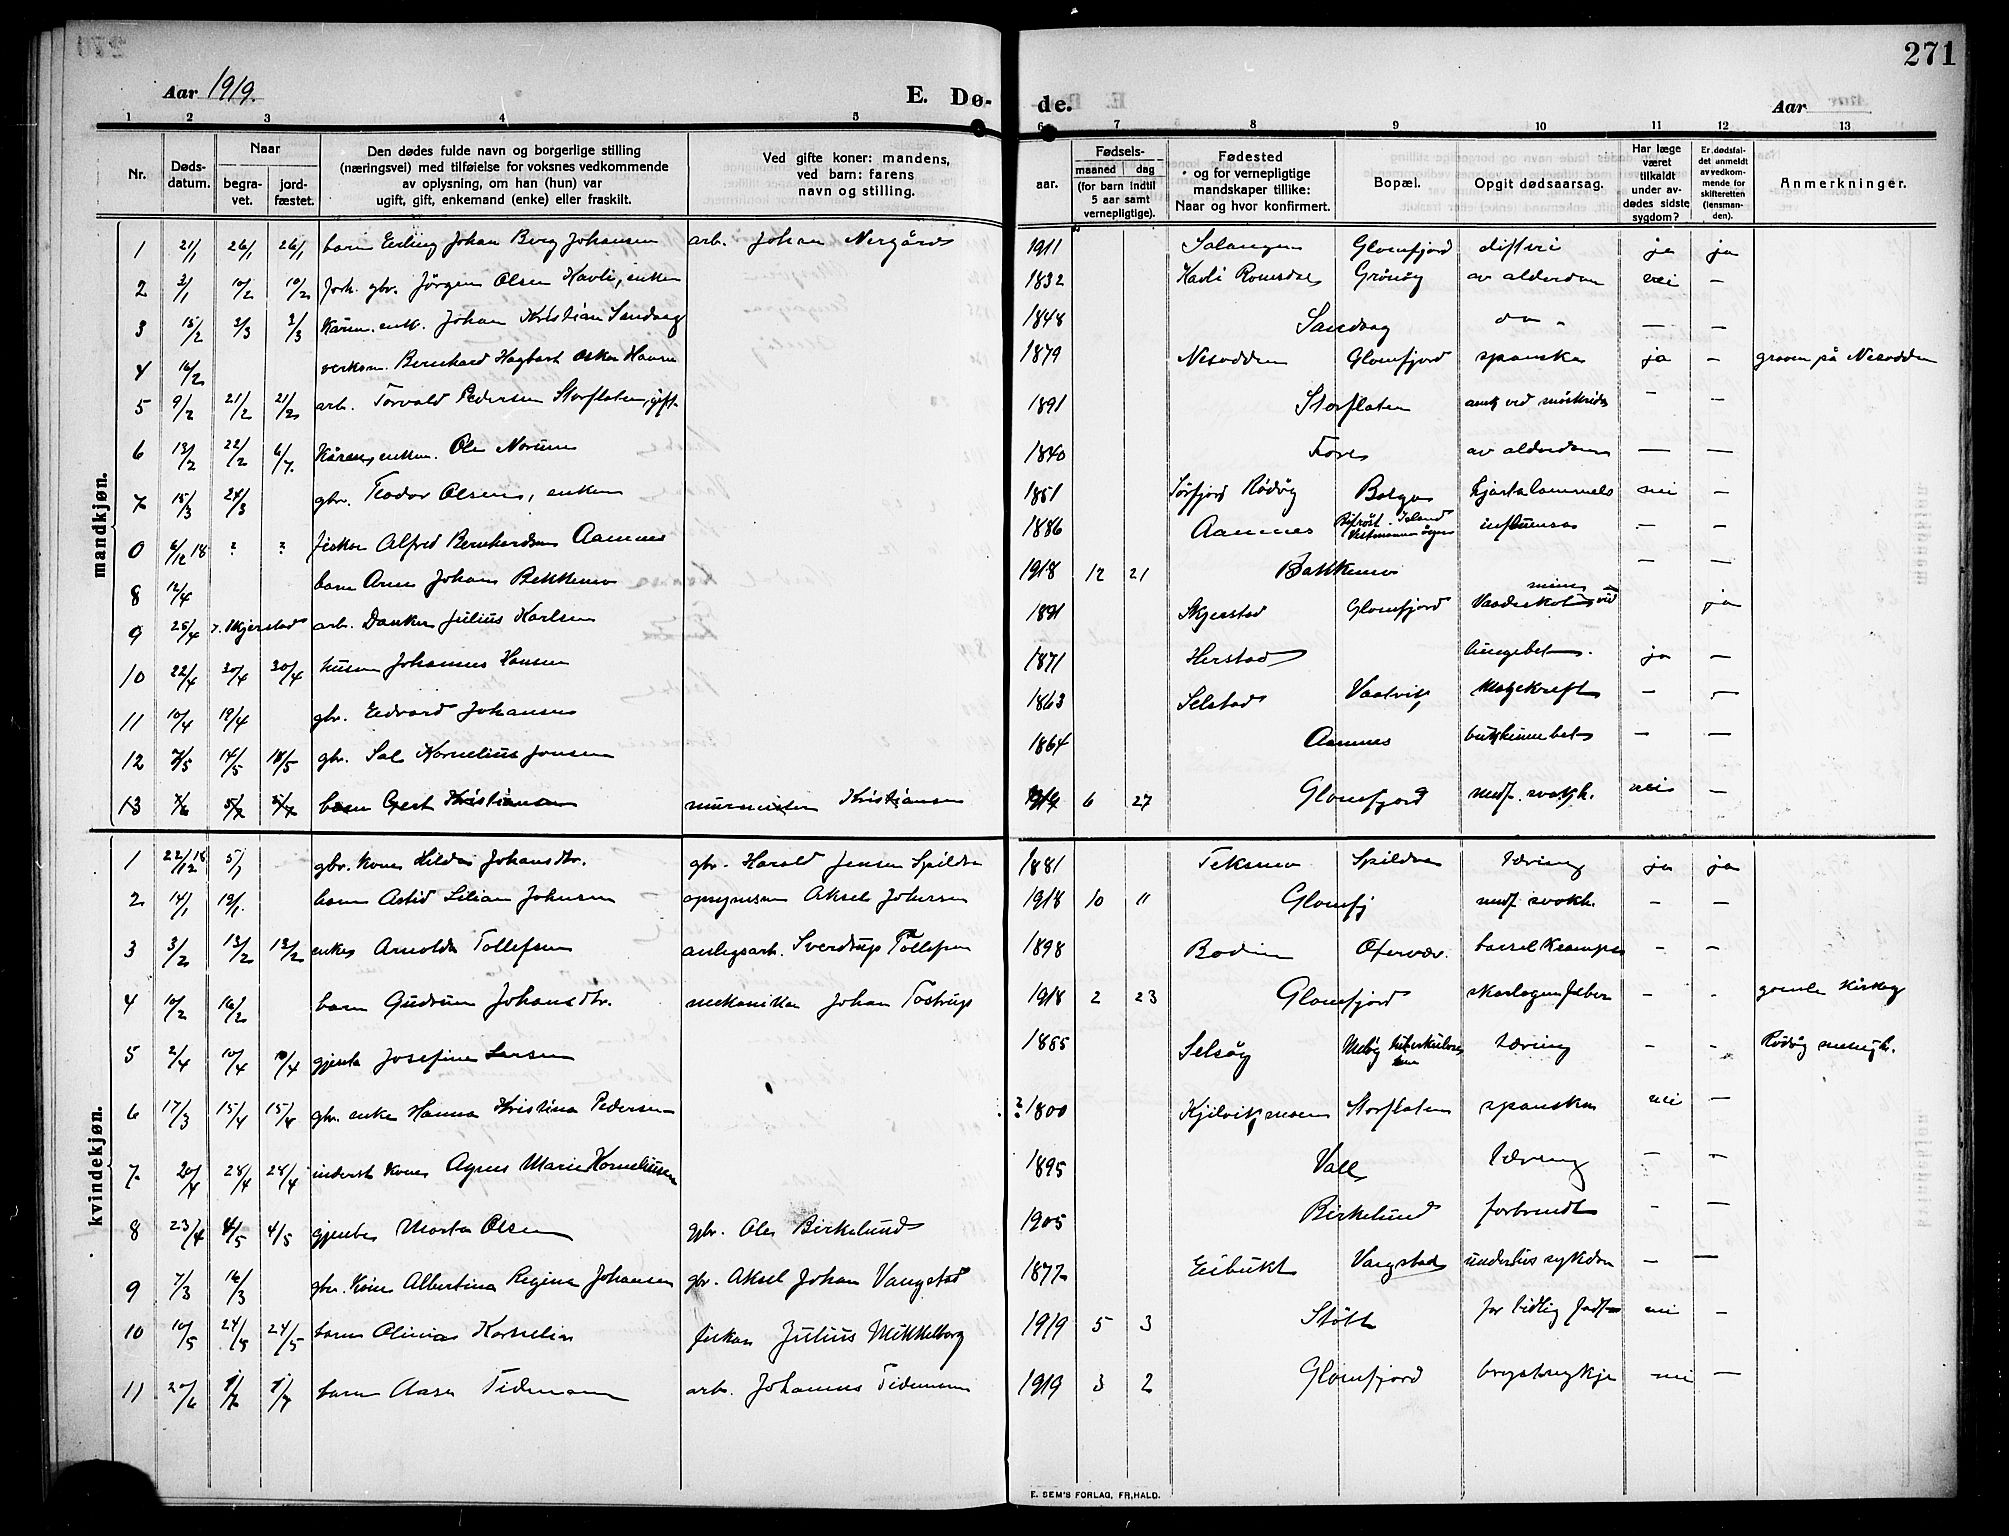 271
Aar 1919.
E. Dø-
de.
Aar
1 2 3 4 5 6 7 8 9 10 11 12 13
Nr.
Døds-
datum.
Naar
begra-
vet.
jord-
fæstet.
Den dødes fulde navn og borgerlige stilling
(næringsvei) med tilføielse for voksnes vedkommende
av oplysning, om han (hun) var
ugift, gift, enkemand (enke) eller fraskilt.
Ved gifte koner: mandens,
ved barn: farens
navn og stilling.
Fødsels-
aar.
maaned dag
(for barn indtil
5 aar samt
vernepligtige).
Fødested
og for vernepligtige
mandskaper tillike:
Naar og hvor konfirmert.
Bopæl.
Opgit dødsaarsag.
Har læge
været
tilkaldt
under av-
dødes sidste
sygdom?
Er dødsfal-
det anmeldt
av vedkom-
mende for
skifteretten
(lensman-
den).
Anmerkninger.
mandkjøn.
1 21/1 26/1 26/1 barn Erling Johan Berg Johansen arb. Johan Nergård 1911 Salangen Glomfjord difteri ja ja
2 3/1 10/2 10/2 forh. gbr. Jörgen Olsen Havli, enkem 1832 Havli Romsdal Grönöy av alderdom nei –
3 15/2 3/3 3/3 Kårm. enk. Johan Kristian Sandvaag 1848 Sandvaag do – –
4 16/2 verksm. Bernhard Hagbart Oskar Havn 1879 Nesodden Glomfjord spanska ja – graven på Nesodden
5 9/2 21/2 21/2 arb. Torvald Pedersen Storflaten, gift 1891 Storflaten – –
6 13/2 22/2 6/7. Kåren, enkem. Ole Norum 1840 Fore av alderdom – –
7 15/3 24/3 gbr. Teodor Olsen, enkem 1851 Sörfjord Rödöy Bolga hjertelammels nei –
0 6/12 18 ? ? fisker Alfred Bernhardsen Aamnes 1886 Aamnes Bifröst Island Vestmannaöyene influensa – –
8 12/4 barn Arne Johan Bekkemo 1918 12 21 Bakkemo – –
9 25/4 i Skjerstad arb. Danker Julius Karlsen 1891 Skjerstad Glomfjord Vaadeskot ved mine ja
10 22/4 30/4 30/4 husm Johannes Hansen 1871 Herstad lungebet. ja –
11 10/4 19/4 gbr. Edvard Johansen 1863 Selstad Vaatvik Magekreft – –
12 7/5 14/5 18/5 gbr. Sal Kornelius Jonsen 1864 Aamnes bukhinnebet – –
13 7/6 5/7 5/7 barn Gert Kristiansen murmester Kristiansen 1919 6 27 Glomfjord medf. svakh. nei –
kvindekjøn.
1 22/12 18 5/1 gbr. kone Hilda Johansdtr. gbr. Harald Jensen Spildra 1881 Teksmo Spildra tæring ja ja
2 14/1 19/1. barn Astrid Lilian Johnsen opsynsm Aksel Johnsen 1918 10 11 Glomfj medf. svakh. – –
3 3/2 13/2 13/2 enke Arnolda Tollefsen anlegsarb. Sverdrup Tollefsen 1898 Bodin Otervær. barselkrampe – –
4 10/2 16/2 barn Gudrun Johansdtr. mekaniker Johan Tostrup 1918 2 23 Glomfjord skarlagensfeber – – gamle kirkeg
5 2/4 10/4 10/4 gjenta Josefine Larsen 1855 Selsöy Melöy tuberkuloseheim tæring – – Rödöy menigh.
6 17/3 15/4 15/4 gbr. enke Hanna Kristina Pedersen ? 1800 Kjelviksmoen Storflaten spanska nei –
7. 20/4 28/4 28/4 inderst kone Agnes Marie Korneliussen 1895 Vall tæring – –
8 23/4 4/5 4/5 gjente Marta Olsen gbr. Ole Birkelund 1905 Birkelund forbrendt – –
9 7/3 16/3 gbr. kone Albertina Regina Johansen gbr. Aksel Johan Vangstad 1877 Eibukt Vangstad underlivssykdom – –
10 10/5 24/5 24/5 barn Olinia Kornelia fisker Julius Mikkelborg 1919 5 3 Stött for tidlig född nei –
11 20/6 1/7 1/7 barn Aase Tidemann arb. Johannes Tidemann 1919 3 2 Glomfjord brystsykje nei –
E. SEM'S FORLAG, FR,HALD.